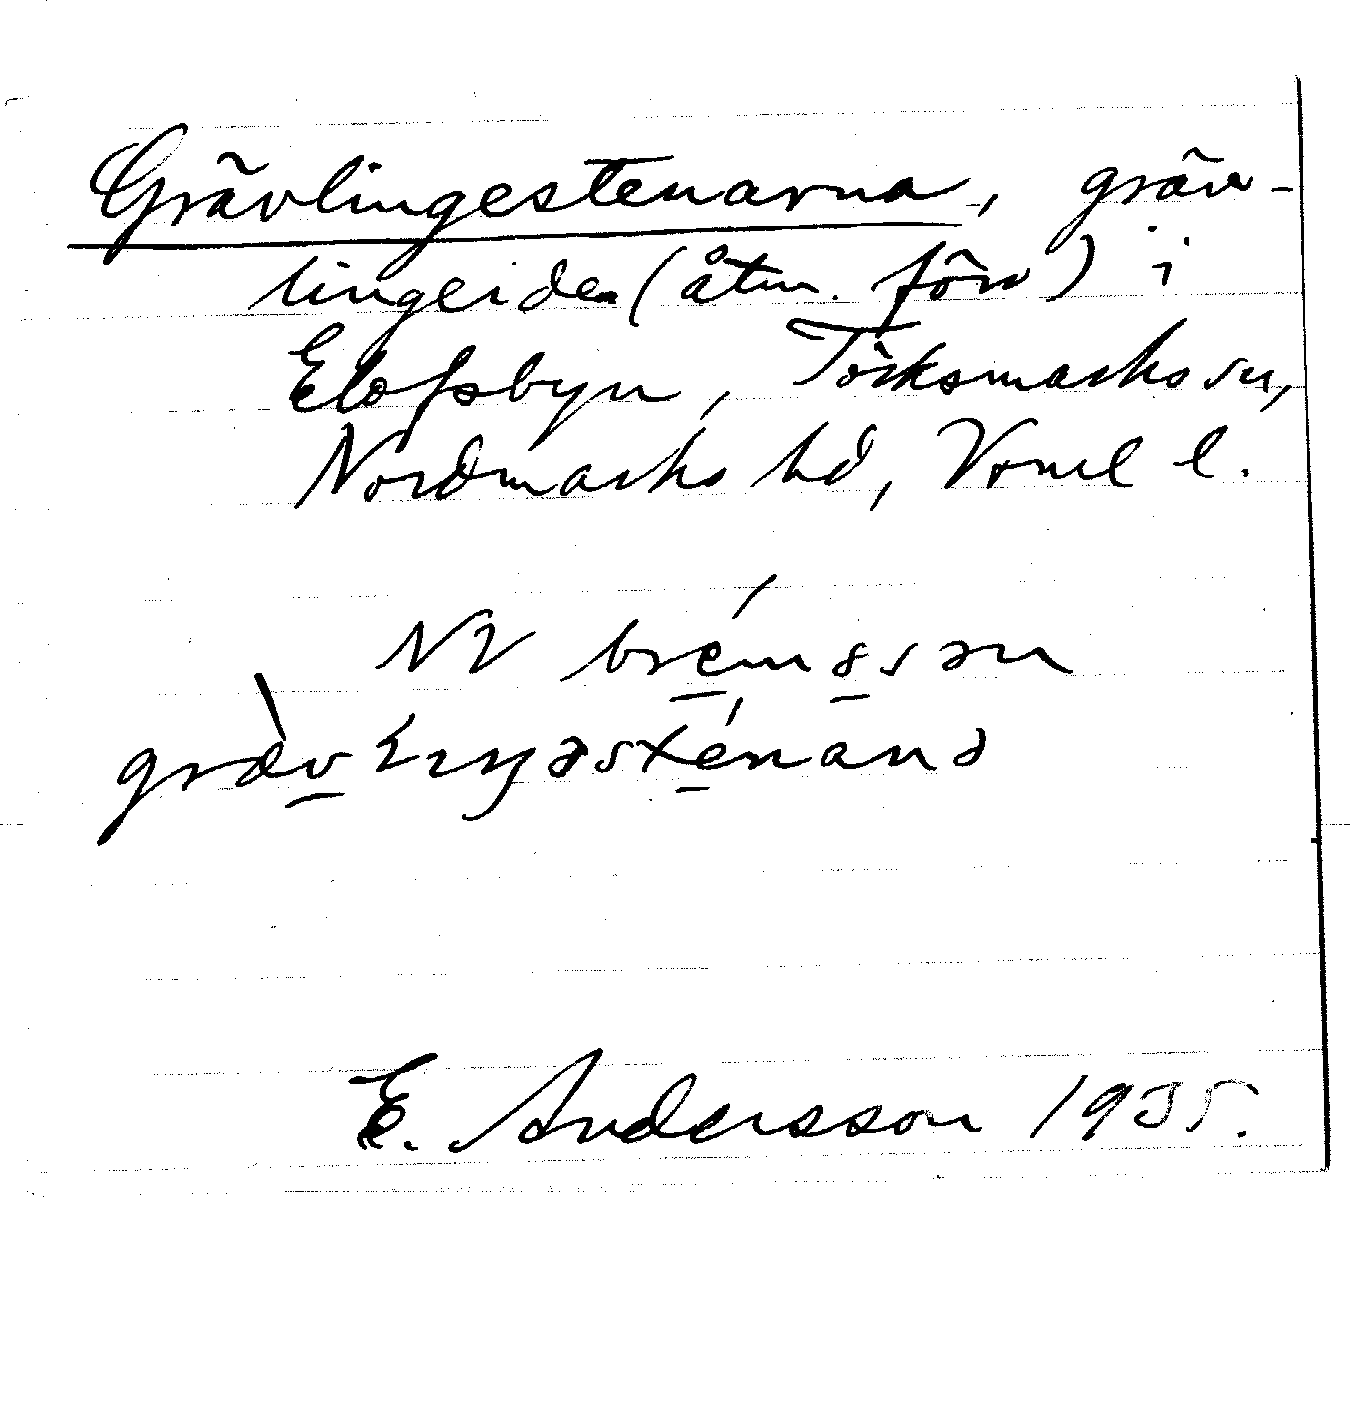 Grävlingestenarna, gräv-
lingeide (åtm. förr) i
Elofsbyn, Töcksmarks sn,
Nordmarks hd, Vrml l.
NV bre̱msən
grævliŋəsténanə
E. Andersson 1935.